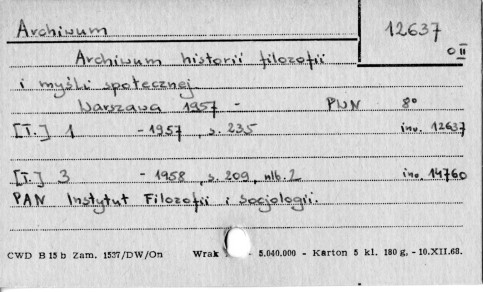 Archiwum 12637
O II
Archiwum historii filozofii
i myśli społecznej
Warszawa 1957 - PWN 8°
[T.] 1 - 1957, s. 235 inw. 12637
[T.] 3 - 1958, s. 209, nlb. 2 inw. 14760
PAN Instytut Filozofii i socjologii.
CWD B 15 b Zam. 1537/DW/On Wrak - 5.040.000 - Karton 5 kl. 180 g. - 10.XII.68.